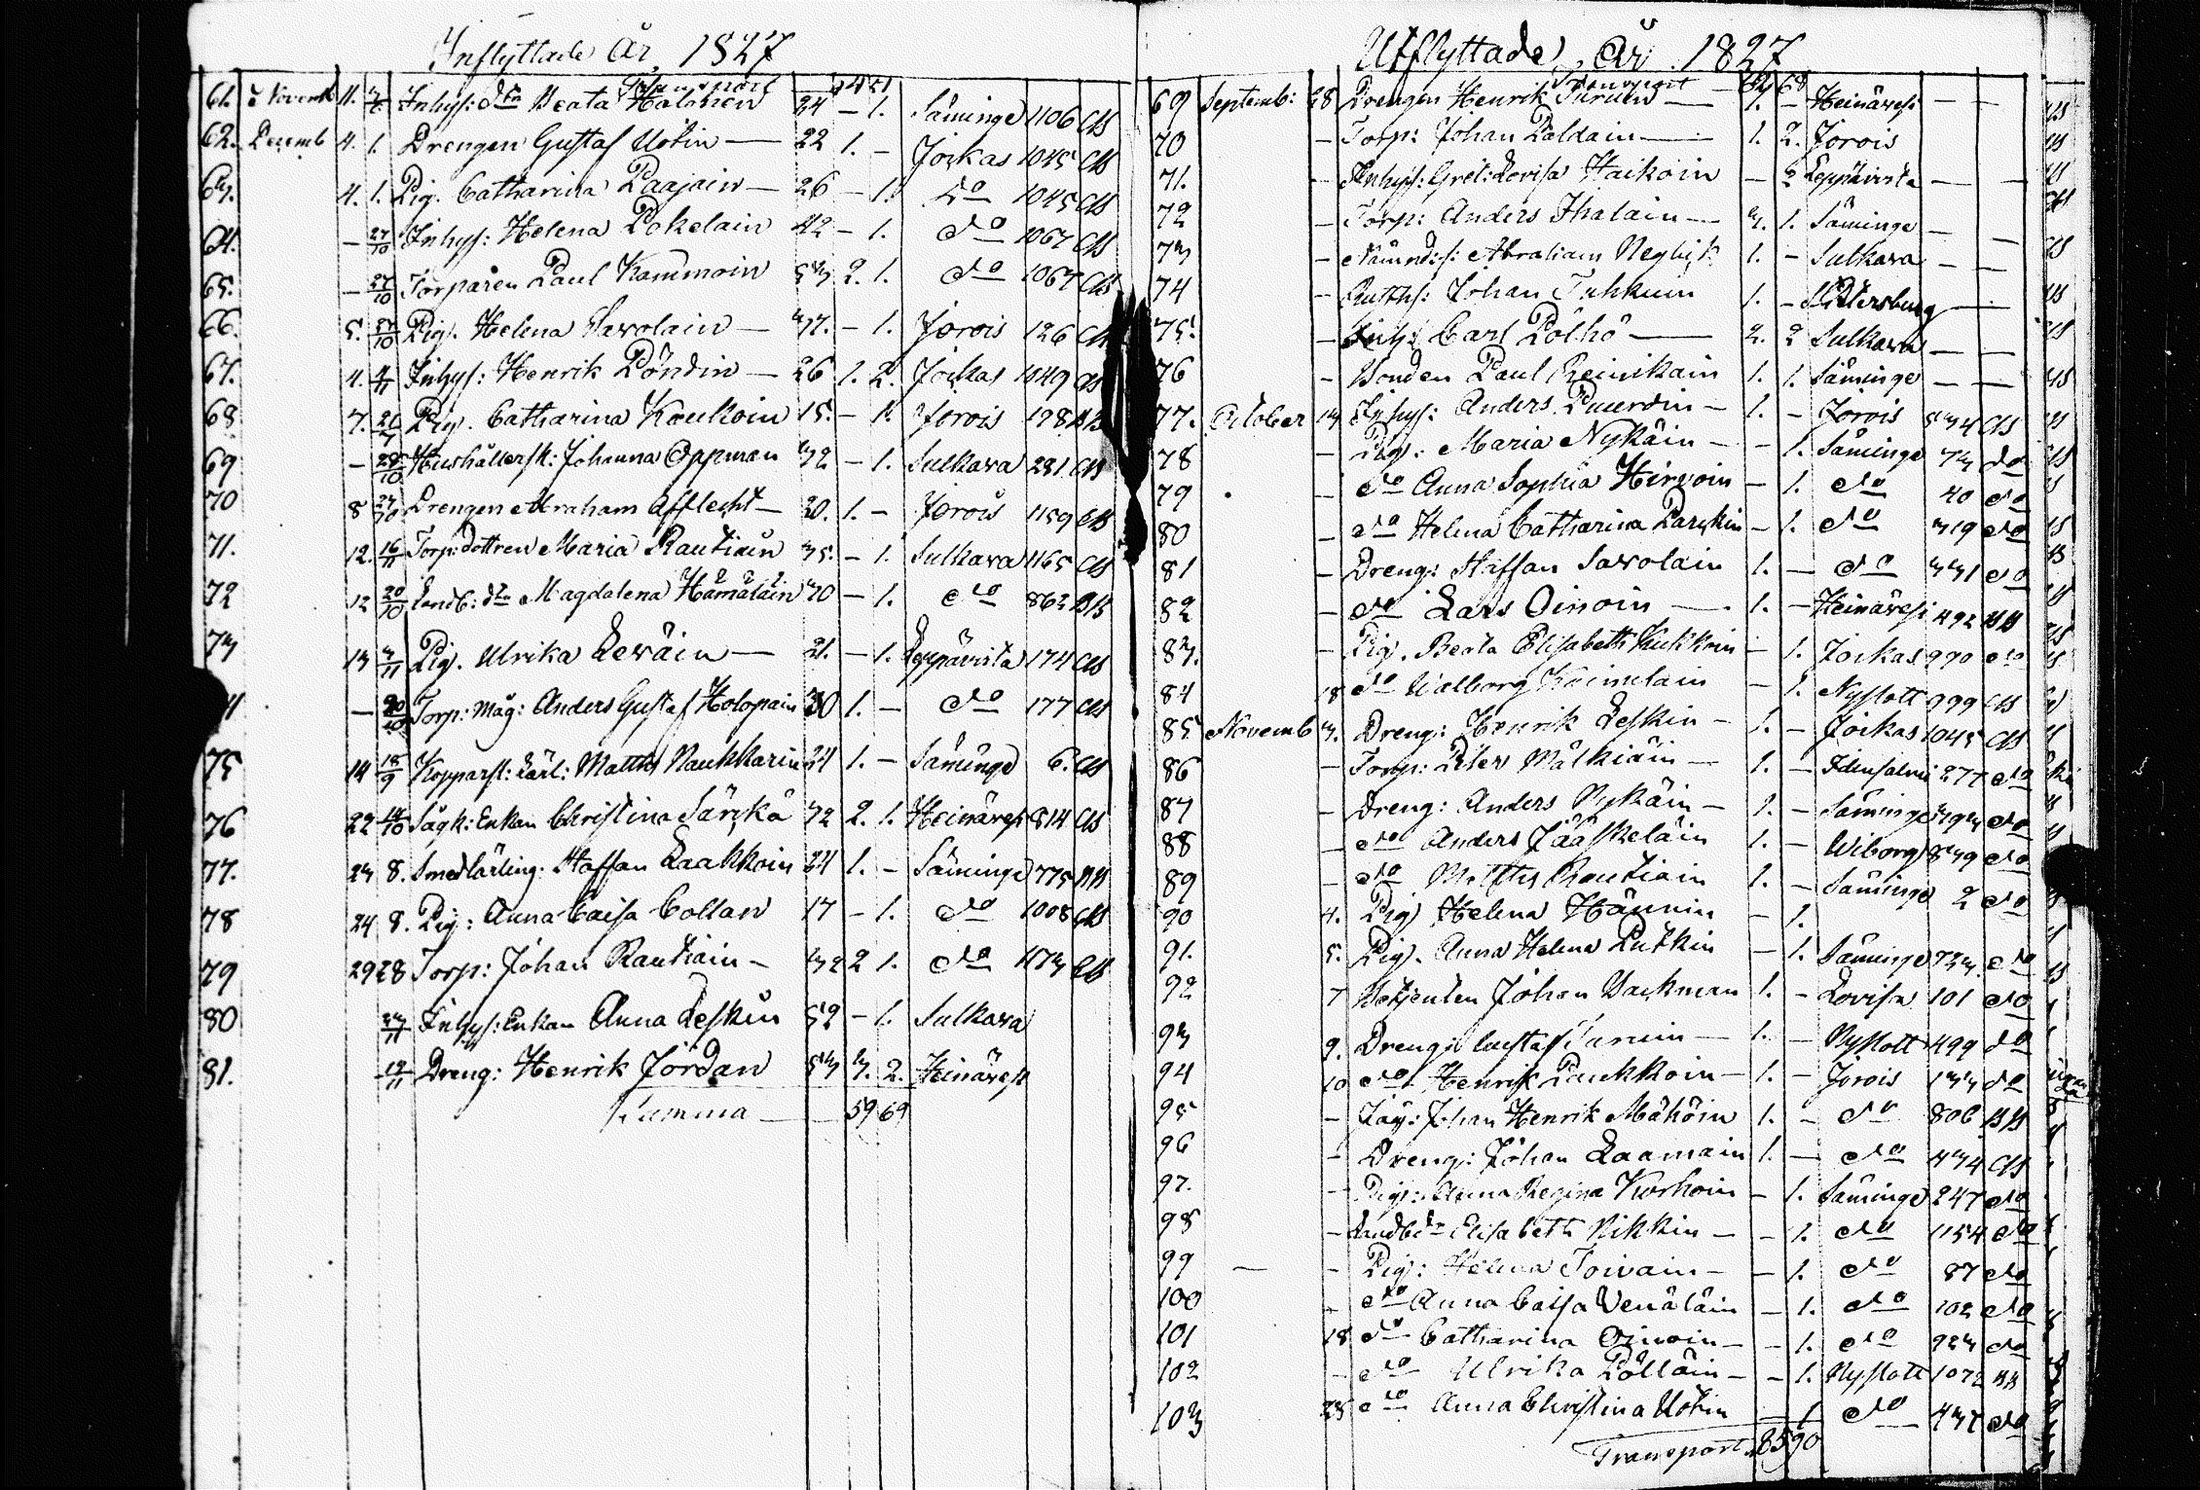 Inflyttade År 1827
Transport
61. Novemb 4. Inhys: dr Beata Halonen 24 - 1. Säminge 1106 CB
62. Decemb 4. 1. Drengen Gustaf Uotin — 22 1. - Jockas 1045 CB
63. 4. 1. Pig. Catharina Paajain — 26 - 1. do 1045 CB
64. — 27/10 Inhys: Helena Pokelain 42 - 1. do 1067 CB
65. — 27/10 Torparen Paul Kammoin 53 2. 1. do 1067 CB
66. 5. 27/10 Pig. Helena Savolain — 37. - 1. Jorois 126 CB
67. 4. Inhys: Henrik Pöndin — 26 1. 2. Jockas 1049 CB
68 7. Pig. Catharina Koukoin 15. - 1. Jorois 198 BB
69 — 28/10 Hushållersk: Johanna Oppman 32 - 1. Sulkava 281 CB
70 8 27/10 Drengen Abraham Afflecht — 20. 1. - Jorois 1159 CB
71. 12. 16/11 Torp: Dottren Maria Rautiain 35. - 1. Sulkava 1165 CB
72 12 20/10 Landb: dr Magdalena Hämäläin 30 - 1. do 862 BB
73 13 3/11 Pig. Ulrika Leväin — 21. - 1. Leppävirta 174 CB
— 20/10 Torp: Måg: Anders Gustaf Holopain 30 1. - do 177 CB
75 14 18/9 Kopparsl: Lärl: Matths Naukkarin 24 1. - Säminge 6. CB
76 22 14/10 Sågk: Enkan Christina Särkkä 32 2. 1. Heinävesi 814 CB
77. 23 8. Smedlärling. Staffan Laakkoin 24 1. - Säminge 775 BB
78 24 8. Pig: Anna Caisa Collan 17 - 1. do 1008 CB
79 29 28 Torp: Johan Rautiain - 32 2 1. do 1173 CB
80 Inhys: Enkan Anna Leskin 52 - 1. Sulkava
81. 19/11 Dreng: Henrik Jordan 53 3. 2. Heinävesi
Summa — 59 69
Utflyttade År 1827
Transport 68
69 Septemb: 28 Drengen Henrik Turuin — 1. - Heinävesi — —
70 - Torp: Johan Paldain — 1. 2. Jorois
71. - Inhys: Gret: Lovisa Haikoin - 2 Leppävirta — —
72 - Torp: Anders Ihalain — 3. 1. Säminge — —
73 - Nämnds: Abraham Neglick 1. - Sulkava — —
74 - Johan Tuhkuin 1. - St Petersburg —
75. - Inhy: Carl Pölhö — 2. 2 Sulkava — —
76 - Bonden Paul Reinikain 1. 1. Säminge — —
77. October 13 Inhys: Anders Puuroin - 1. - Jorois 534 CB
78 - Pig: Maria Nykäin - - 1. Säminge 73 do
79 - do Anna Sophia Hirvoin - 1. do 40 do
80 - do Helena Catharina Parskin - 1. do 319 do
81 - Dreng: Staffan Savolain 1. - do 331 do
82 - do Lars Oinoin — 1. - Heinävesi 492 BB
83. - Pig. Beata Elisabeth Kukkoin - 1. Jockas 990 do
84 18 do Walborg Koimelain - 1. Nyslott 999 CB
85 Novemb 3. Dreng: Henrik Leskin - 1. - Jockas 1045 CB
86 - Torp: Peter Mälkiäin — 1. - Idensalmi 277 do
87 - Dreng: Anders Nykäin - 1. - Säminge 393 do
88 - do Anders Jääskeläin 1. - Wiborg 839 do
89 - do Matths Rautiain 1. - Säminge 2 do
90 4. Pig Helena Hännin - 1.
91. 5. Pig. Anna Helena Putkin - 1. Säminge 733 do
92 7 Betjenten Johan Backman 1. - Lovisa 101 do
93 9. Dreng: Gustaf Turuin — 1. - Nyslott 499 do
94 10 do Henrik Paukkoin - 1. - Jorois 133 do
95 - Johan Henrik Mähöin 1. - do 806 BB
96 - Dreng: Johan Laamain 1. - do 434 CB
97. - Pig: Anna Regina Korhoin - 1. Säminge 247 do
98 - Landb: dr Elisabeth Nikkin - - 1. do 1154 do
99 - Pig: Helena Toivain - - 1. do 87 do
100 - do Anna Caisa Venäläin - 1. do 102 do
101 18 do Catharina Oinoin - - 1. do 923 do
102 - do Ulrika Pölläin - - 1. Nyslott 1072 BB
103 25 do Anna Christina Uotin — 1 do 437 do
Transport 85 90